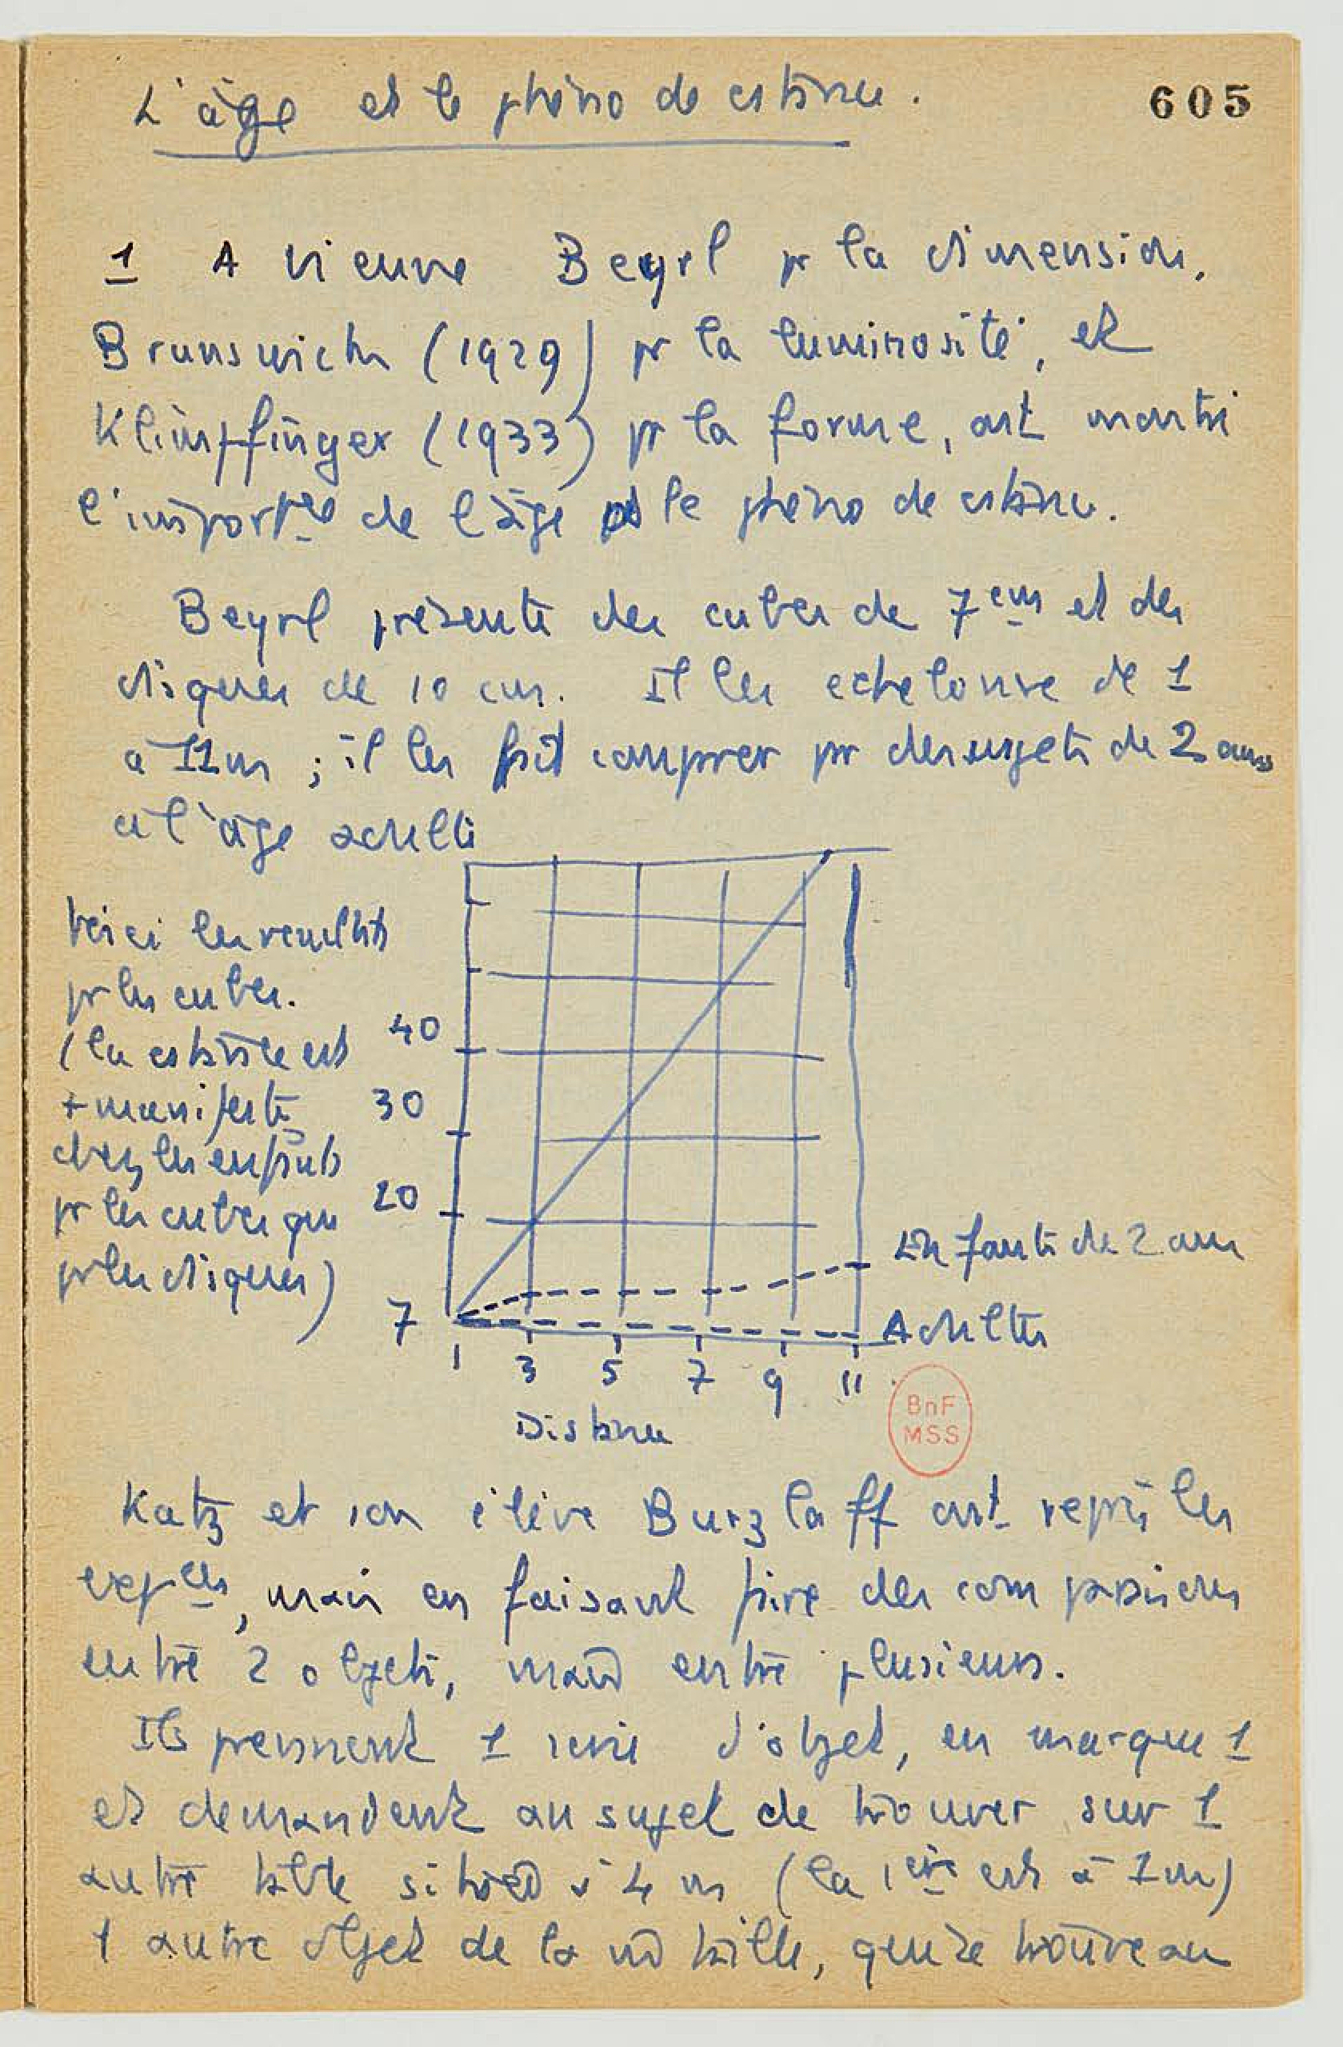 L'âge et le phéno de cstance.
605
1 A Vienne Beyrl pr la dimension,
Brunswick (1929) pr la luminosité, et
Klimpfinger (1933) pr la forme, ont montré
l'importce de l'âge ds le phéno de cstance.
Beyrl présente des cubes de 7 cm et des
disques de 10 cm. Il les echelonne de 1
à 11m ; il les fait comparer pr des sujets de 2 ans
à l'âge adulte
Voici les résultats
pr les cubes.
(la cstance est
+ manifeste
chez les enfants
pr les cubes que
pr les disques)
40
30
20
7
1 3 5 7 9 11
Distance
Enfants de 2 ans
Adultes
BnF
MSS
Katz et son élève Burzlaff ont repris les
expces, mais en faisant faire des comparaisons
entre 2 objets, entre plusieurs.
Ils prennent 1 série d'objet, en marque 1
et demandent au sujet de trouver sur 1
autre table située à 4 m (la 1ère est à 1m)
1 autre objet de la m̂ taille, qui se trouve au